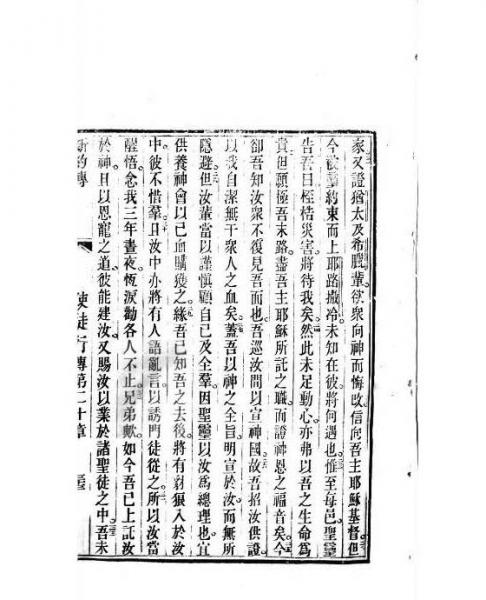 家又證猶太及希臘輩欲衆向神而悔改信向吾主耶穌基督但
今被靈約束而上耶路撒冷未知在彼將何遇也惟至每邑聖靈
告吾曰桎梏災害將待我矣然此未足動心亦弗以吾之生命為
貴但願極吾末路盡吾主耶穌所託之職而證神恩之福音矣今
卻吾知汝衆不復見吾面也吾巡汝間以宣神國故吾招汝供證
以我自潔無干衆人之血矣蓋吾以神之全旨明宣於汝而無所
隱避但汝輩當以謹慎顧自己及全羣因聖靈以汝為總理也宜
供養神會以己血購獲之緣吾已知吾之去後將有豺狼入於汝
中彼不惜羣且汝中亦將有人語亂言以誘門徒從之所以汝當
醒悟念我三年晝夜恆淚勸各人不止兄弟歟如今吾已上託汝
於神且以恩寵之道彼能建汝又賜汝以業於諸聖徒之中吾未
新約傳 使徒行傳第二十章